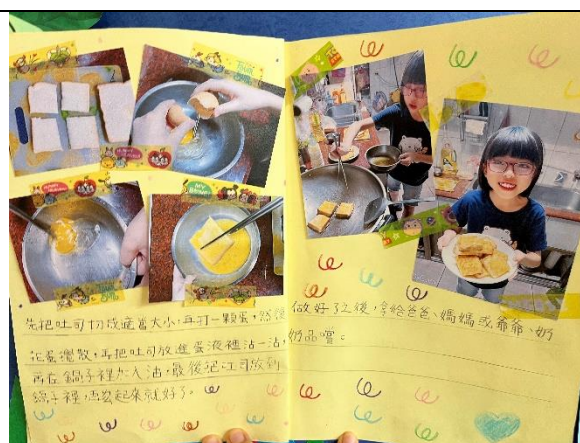 先把吐司切成適當大小,再打一顆蛋,然後
把蛋攪散,再把吐司放進蛋液裡沾一沾,
再在鍋子裡加入油,最後把土司放到
鍋子裡,煎起來就好了。
做好了之後,拿給爸爸、媽媽或爺爺、奶
奶品嚐。